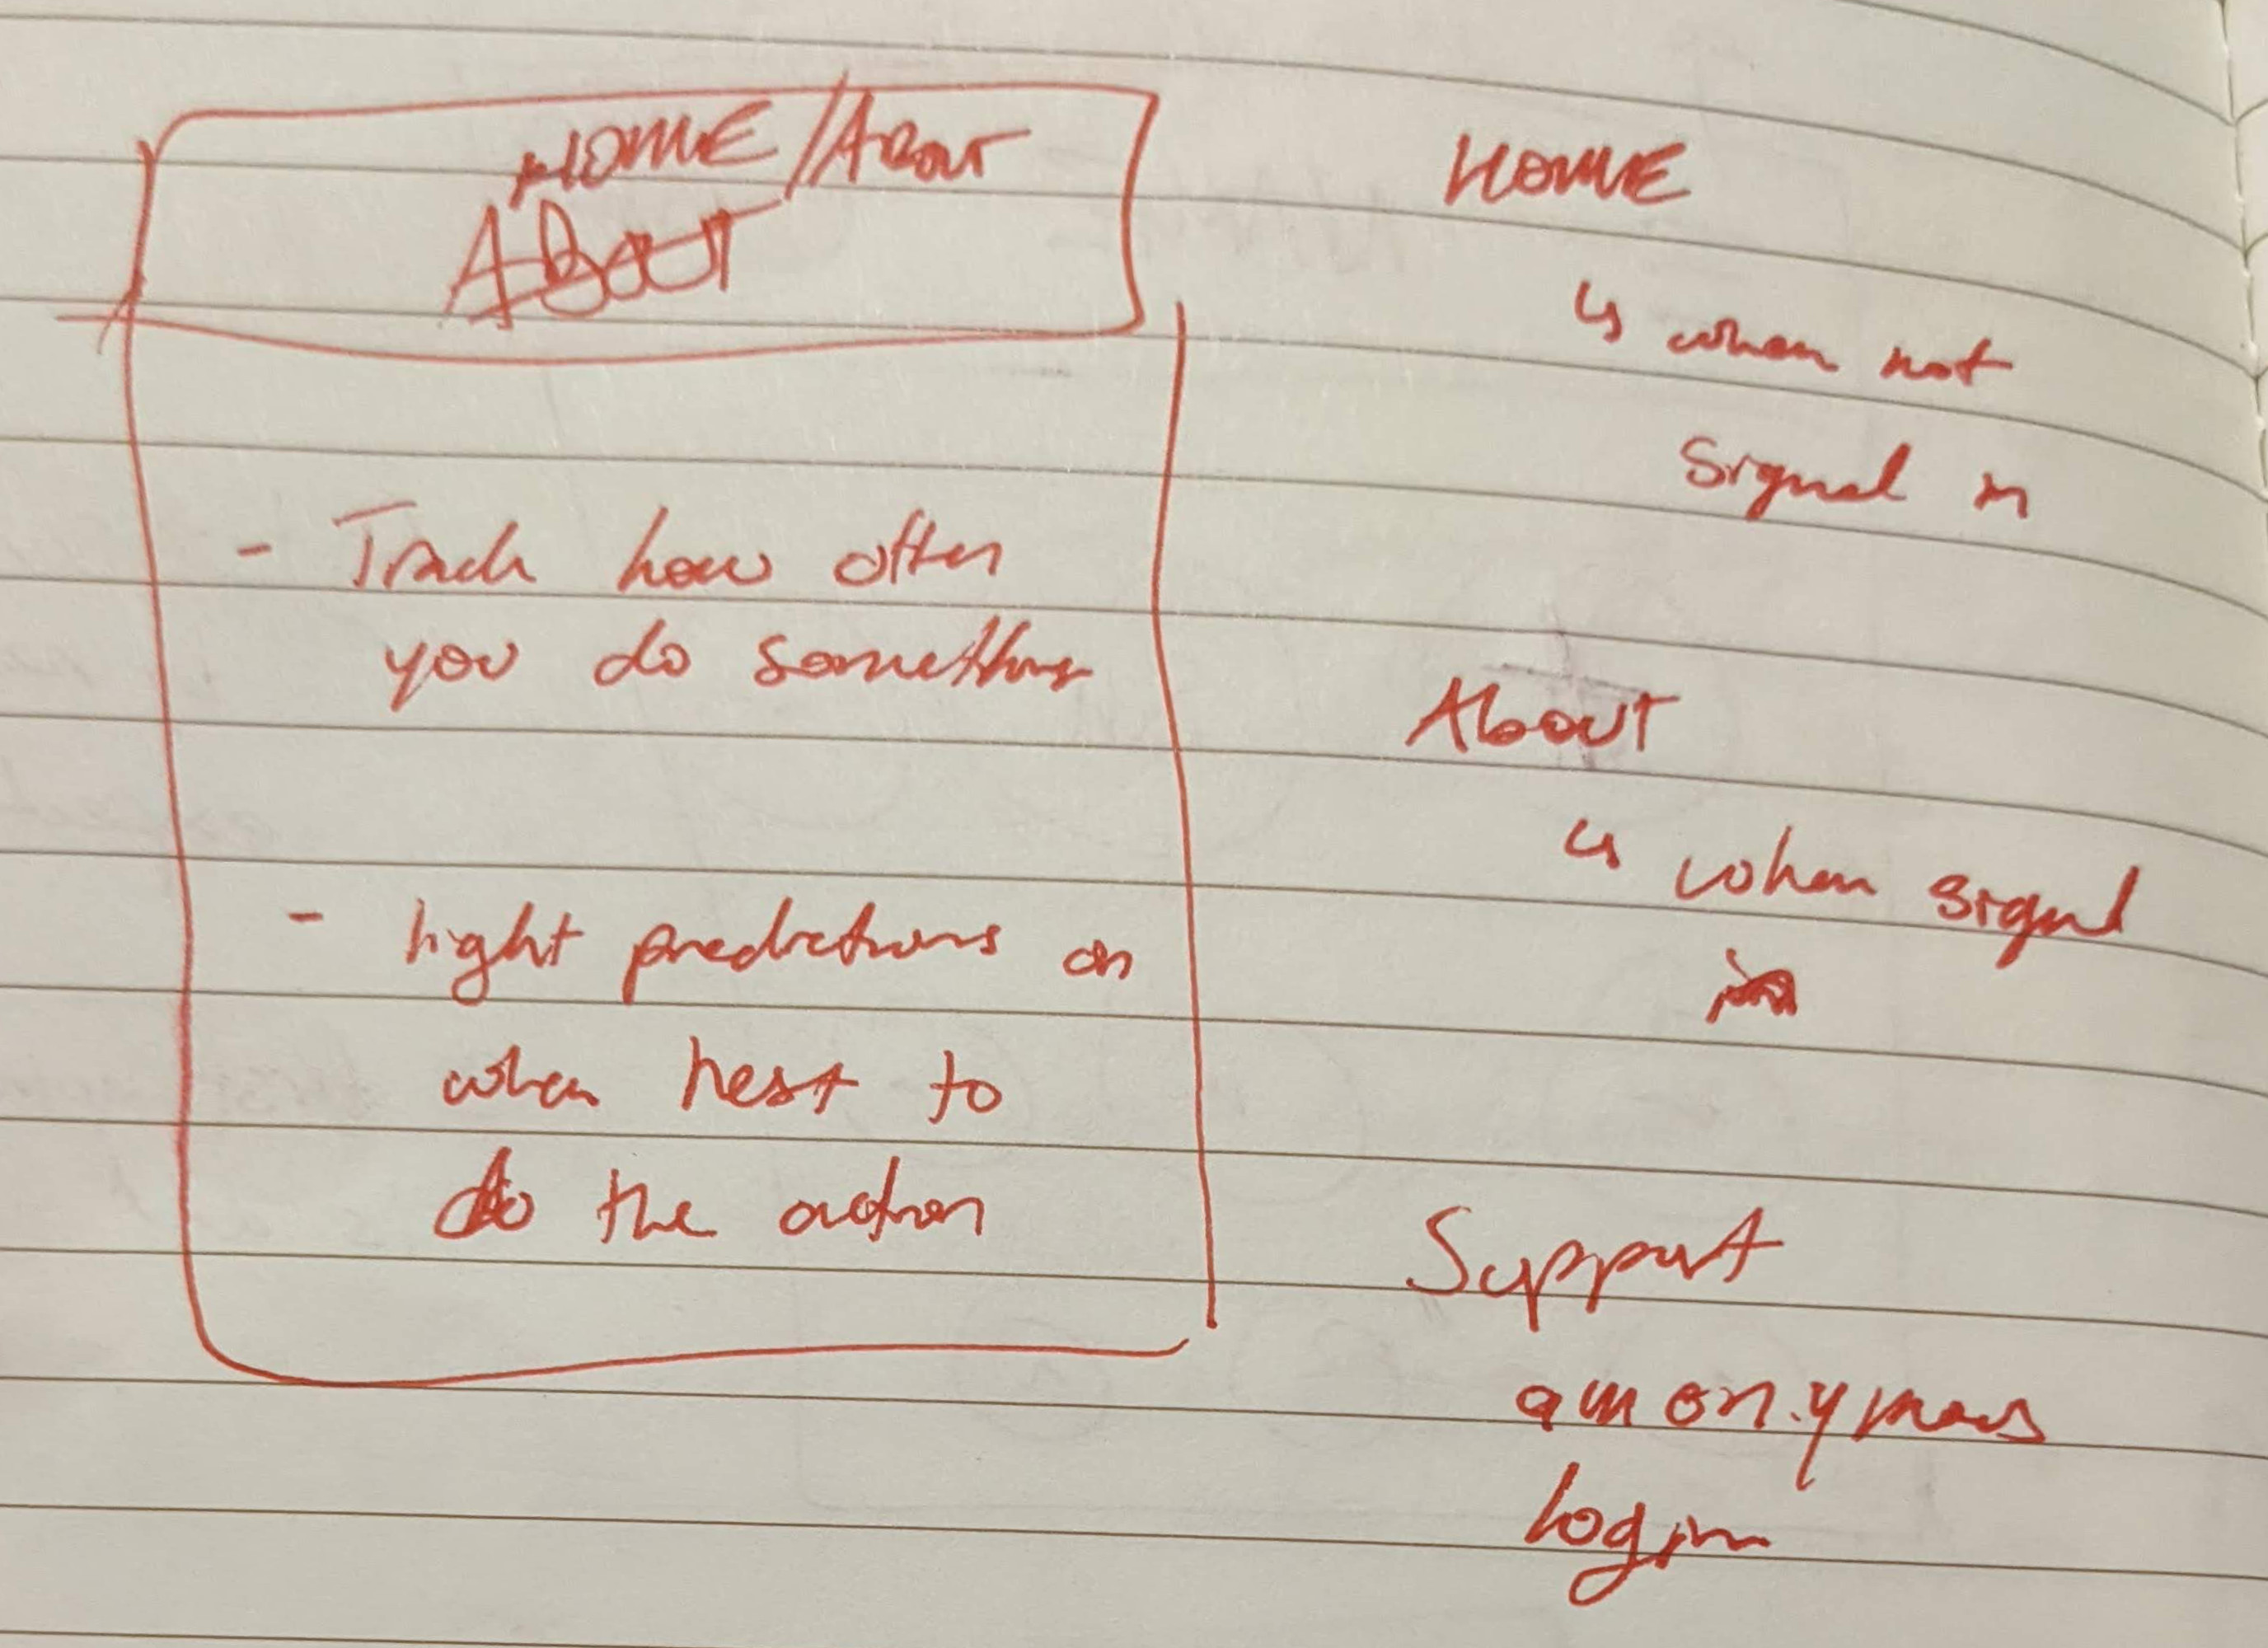 HOME/ABOUT
ABOUT
- Track how often
you do something
- light predictions on
when next to
do the action
HOME
↳ when not
signed in
About
↳ when signed
in
Support
anonymous
login